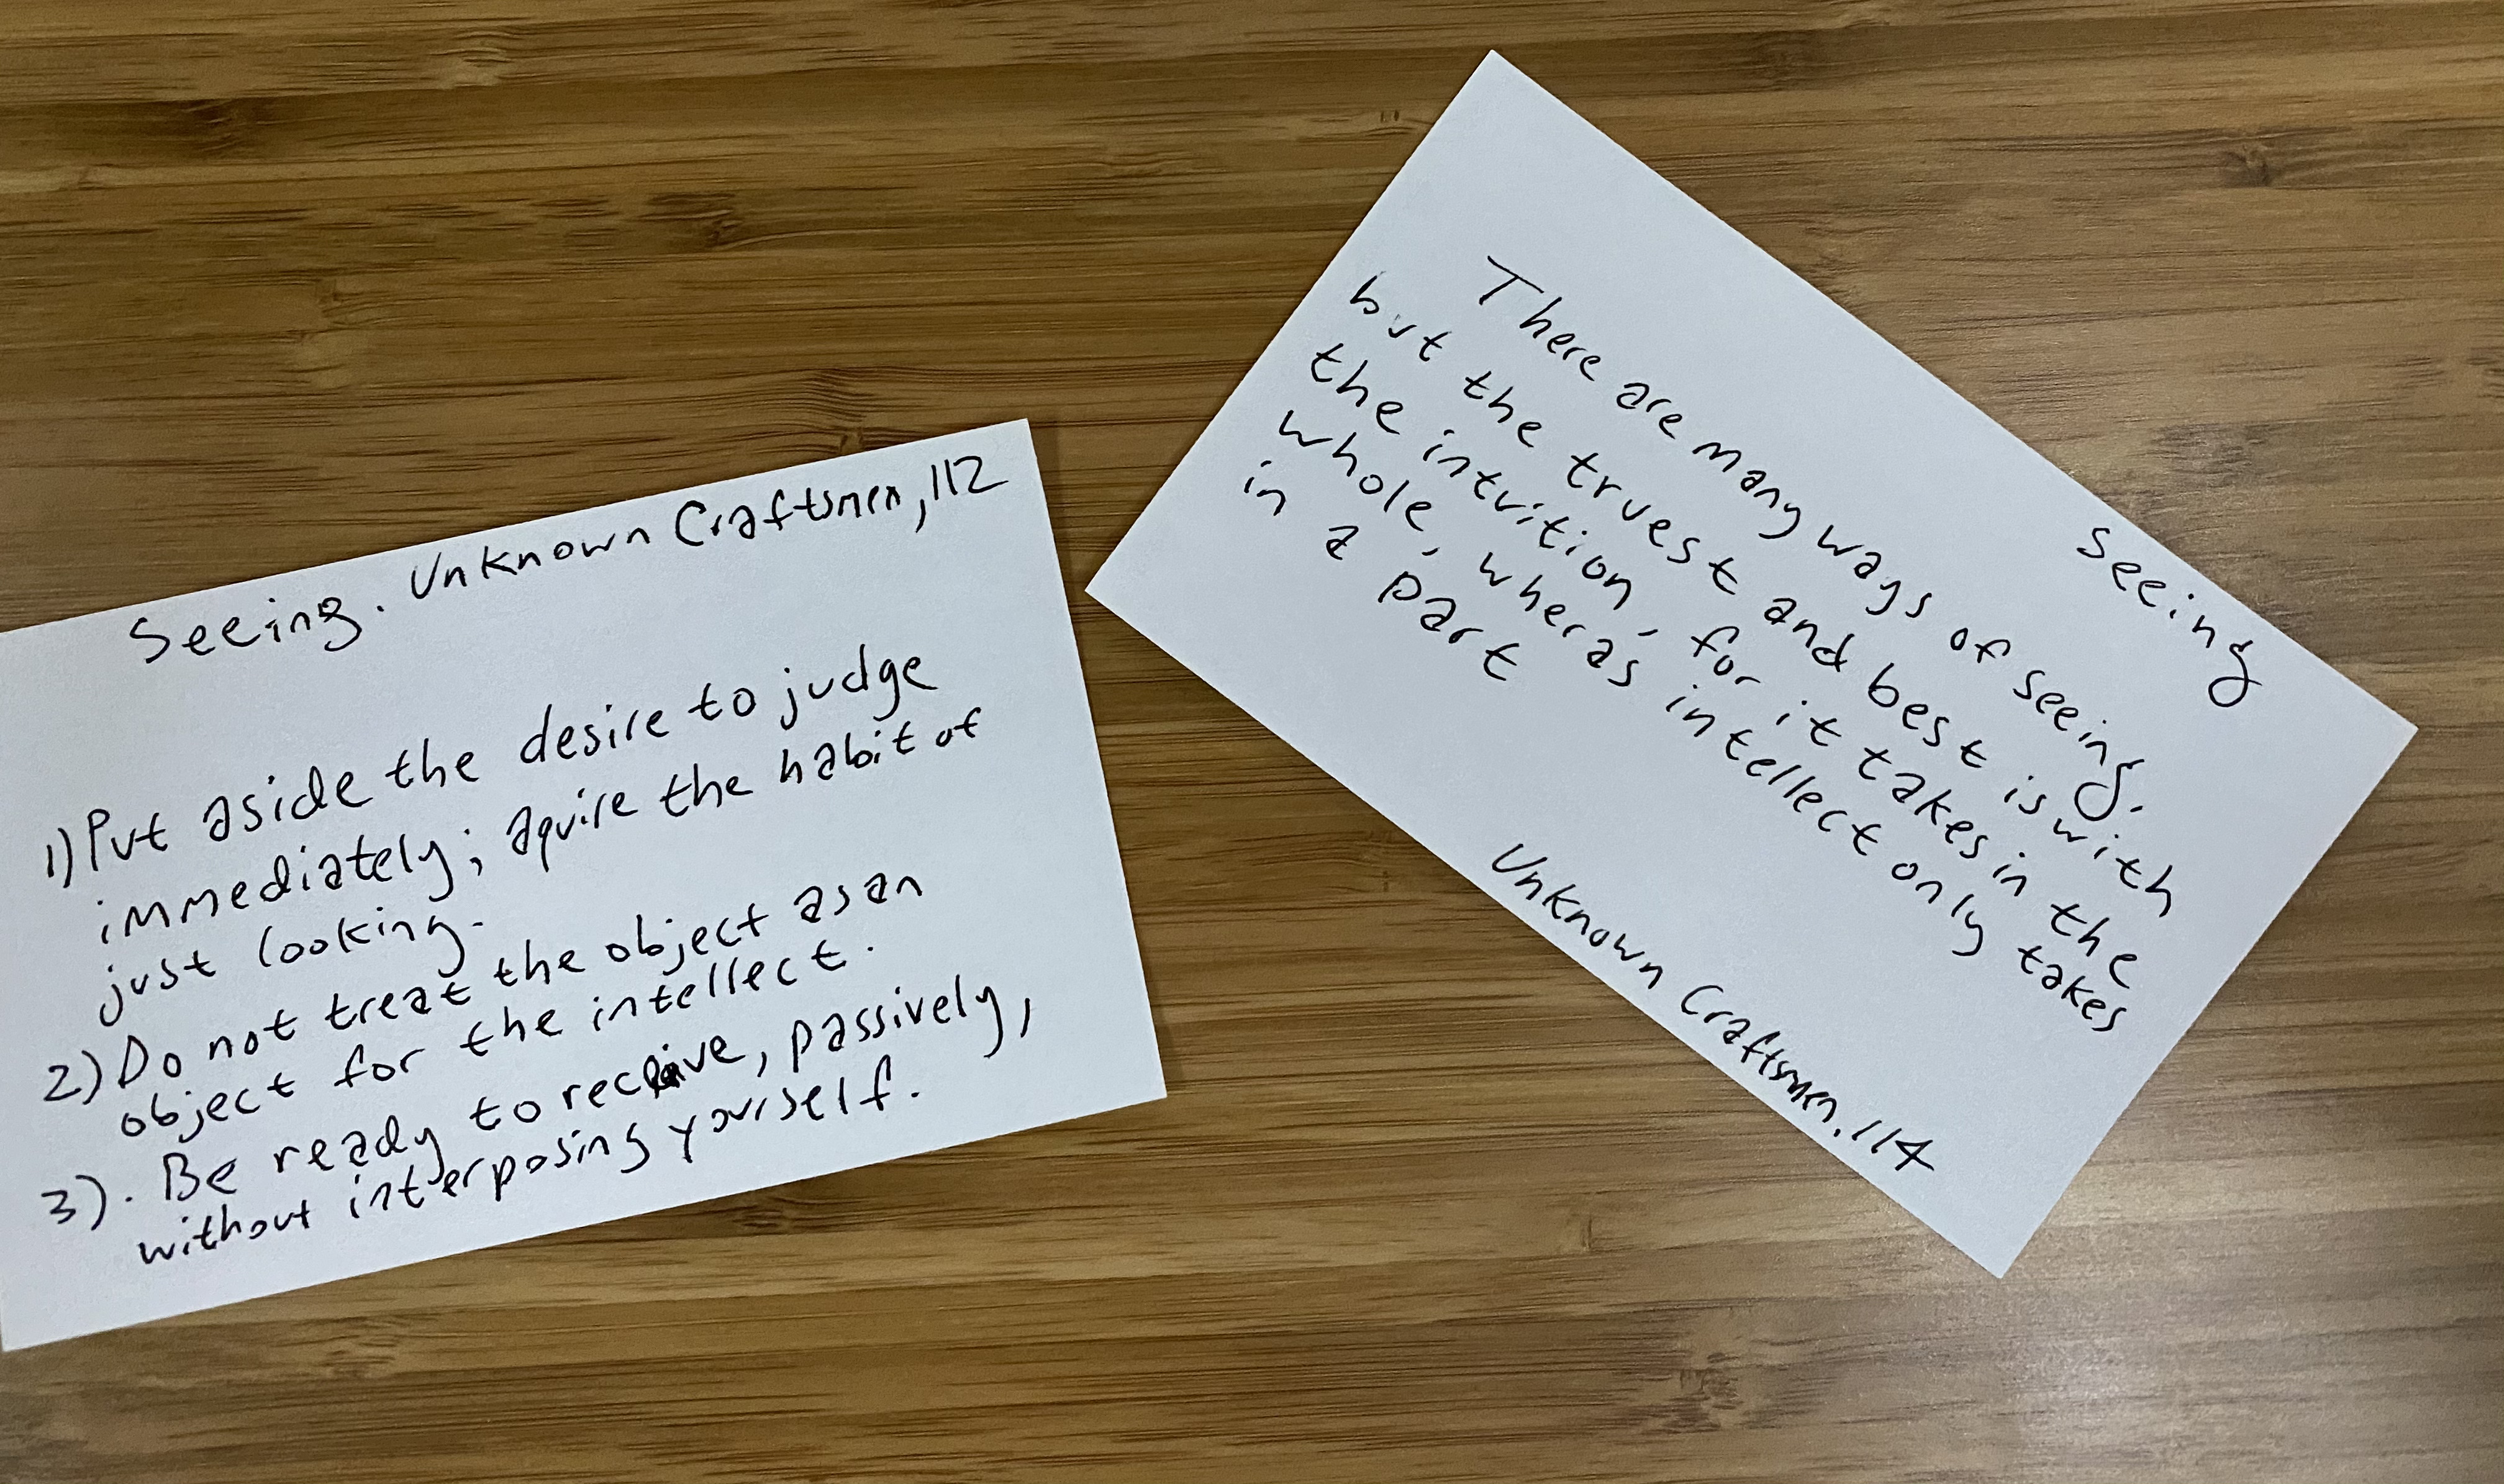 Seeing. Unknown Craftsmen, 112
1) Put aside the desire to judge
immediately; aquire the habit of
just looking.
2) Do not treat the object as an
object for the intellect.
3). Be ready to receive, passively,
without interposing yourself.
Seeing
There are many ways of seeing.
but the truest and best is with
the intuition, for it takes in the
whole, wheras intellect only takes
in a part
Unknown Craftsmen. 114